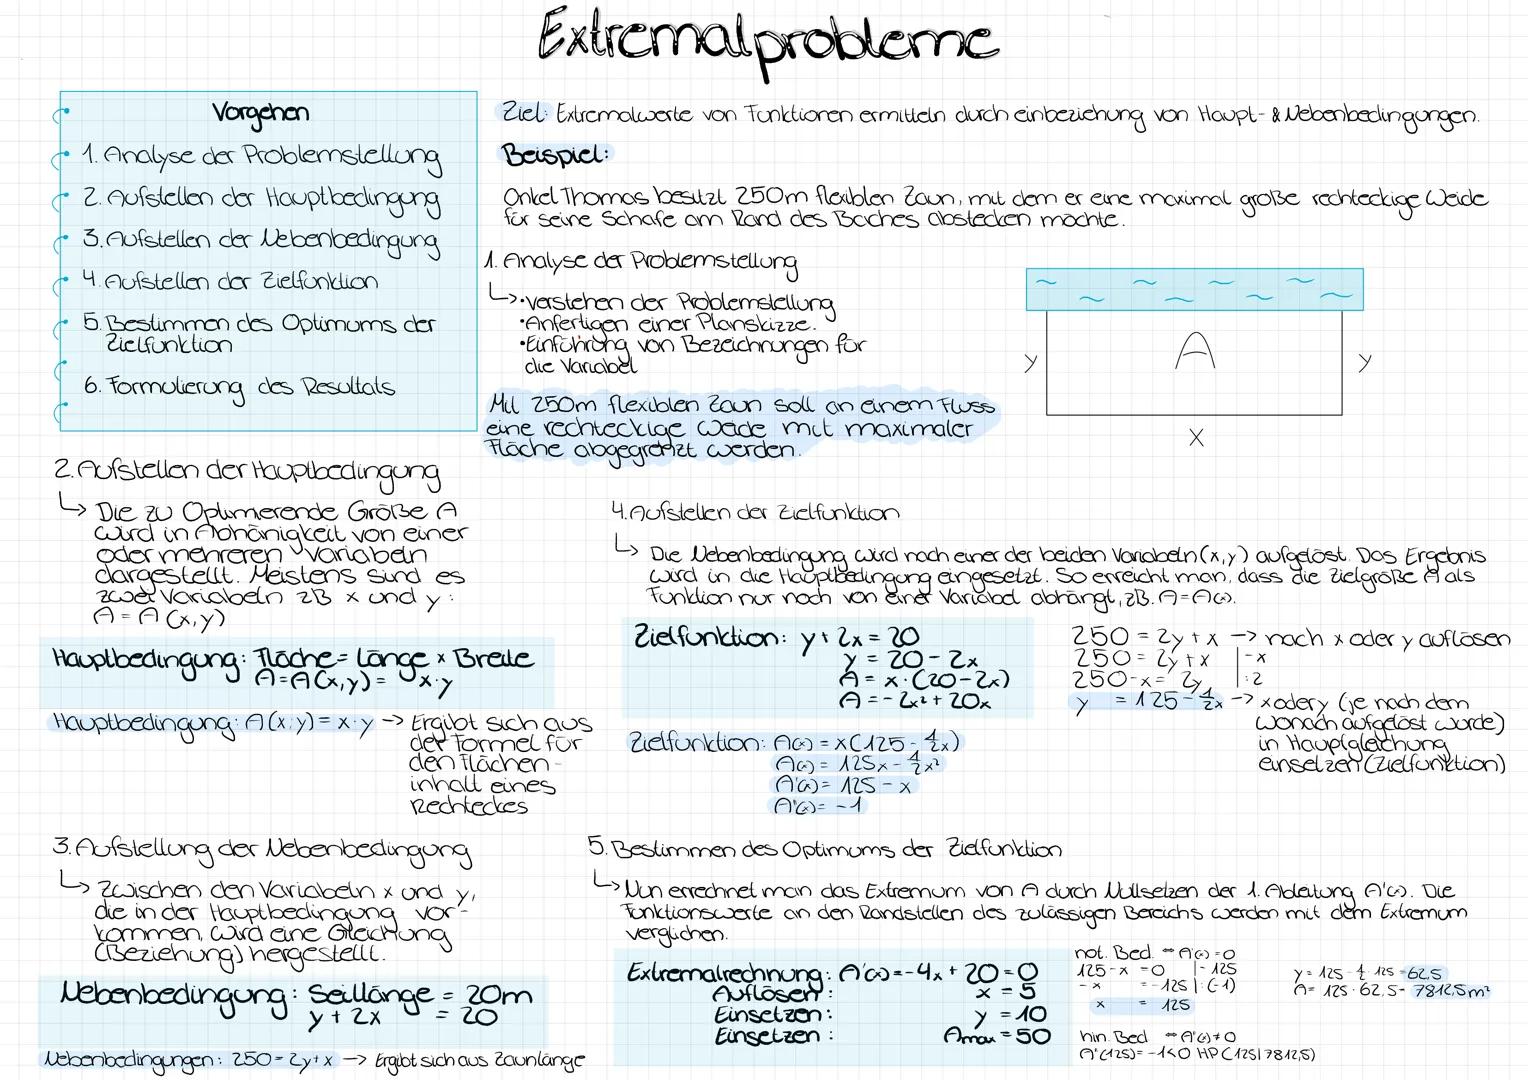 Extremalprobleme
Vorgehen
1. Analyse der Problemstellung
2. Aufstellen der Hauptbedingung
3. Aufstellen der Nebenbedingung
4. Aufstellen der Zielfunktion
5. Bestimmen des Optimums der
Zielfunktion
6. Formulierung des Resultats
Ziel: Extremalwerte von Funktionen ermitteln durch einbeziehung von Haupt- & Nebenbedingungen.
Beispiel:
Onkel Thomas besitzt 250m flexiblen Zaun, mit dem er eine maximal große rechteckige Weide
für seine Schafe am Rand des Baches abstecken möchte.
1. Analyse der Problemstellung
↳ • verstehen der Problemstellung
• Anfertigen einer Planskizze.
• Einführung von Bezeichnungen für
die Variabel
Mit 250m flexiblen Zaun soll an einem Fluss
eine rechteckige Weide mit maximaler
Fläche abgegrenzt werden.
A
y
y
x
2. Aufstellen der Hauptbedingung
↳ Die zu Optimierende Größe A
wird in Abhänigkeit von einer
oder mehreren Variabeln
dargestellt. Meistens sind es
zwei Variabeln zB x und y:
A = A(x,y)
Hauptbedingung: Fläche = Länge × Breite
A = A(x,y) = x·y
Hauptbedingung: A(x;y) = x·y → Ergibt sich aus
der Formel für
den Flächen-
inhalt eines
Rechteckes
3. Aufstellung der Nebenbedingung
↳ Zwischen den Variabeln x und y,
die in der Hauptbedingung vor-
kommen, wird eine Gleichung
(Beziehung) hergestellt.
Nebenbedingung: Seillänge = 20m
y + 2x = 20
Nebenbedingungen: 250 = 2y + x → Ergibt sich aus Zaunlänge
4. Aufstellen der Zielfunktion
↳ Die Nebenbedingung wird nach einer der beiden Variabeln (x,y) aufgelöst. Das Ergebnis
wird in die Hauptbedingung eingesetzt. So erreicht man, dass die Zielgröße A als
Funktion nur noch von einer Variabel abhängt, zB. A = A(x).
Zielfunktion: y + 2x = 20
y = 20 - 2x
A = x·(20-2x)
A = -2x² + 20x
250 = 2y + x → nach x oder y auflösen
250 = 2y + x | -x
250 - x = 2y | :2
y = 125 - 1/2x → x oder y (je nach dem
wonach aufgelöst wurde)
in Hauptgleichung
einsetzen (Zielfunktion)
Zielfunktion: A(x) = x(125 - 1/2x)
A(x) = 125x - 1/2x²
A'(x) = 125 - x
A''(x) = -1
5. Bestimmen des Optimums der Zielfunktion
↳ Nun errechnet man das Extremum von A durch Nullsetzen der 1. Ableitung A'(x). Die
Funktionswerte an den Randstellen des zulässigen Bereichs werden mit dem Extremum
verglichen.
Extremalrechnung: A'(x) = -4x + 20 = 0
Auflösen: x = 5
Einsetzen: y = 10
Einsetzen: Amax = 50
not. Bed. ⇒ A'(x) = 0
125 - x = 0 | - 125
- x = -125 | : (-1)
x = 125
y = 125 - 1/2 · 125 = 62,5
A = 125 · 62,5 = 7812,5m²
hin. Bed ⇒ A''(x) ≠ 0
A''(125) = -1 < 0 HP (125|7812,5)